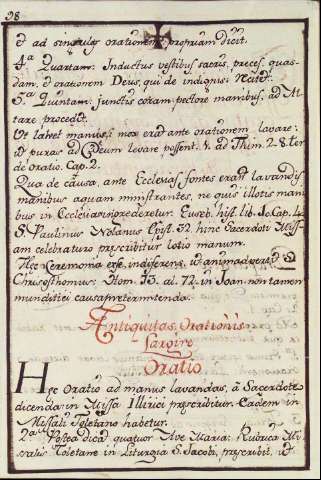 98
et ad singulas orationem propriam dicit.
4.ª Quartam: Inductus vestibus sacris, preces, quas-
dam, et orationem Deus, qui de indignis:
5.ª Quintam: junctis coram pectore manibus, ad Al-
tare procedit.
Ot lavet manus, mox erat ante orationem, lavare:
ut puras ad Cœlum levare possent. V. ad Thim. 2. 8. ter
de oratio. Cap. 2.
Qua de causa, ante Ecclesias fontes erant lavandis
manibus aquam ministrantes, ne quis illotis mani
bus in Ecclesiam ingrederetur. Euseb. hist. lib. Cap. 4.
S. Paulinus Nolanus Epist. 32. hinc Sacerdoti Miss-
am celebraturo prescribitur lotio manum.
Hec Ceremonia esse indiferens, ut animadvertit S.
Chrisosthomus: Hom. 73. al. 72. in Joan. non tamen
munditiei causa pretermitenda.
Antiquitas, Orationis
Largire
Oratio
Hec Oratio ad manus lavandas, a Sacerdote
dicenda in Missa Illirici prescribitur. Eadem in
Missali Toletano habetur.
2.ª Postea dicat quatuor Ave Maria: Rubrica Mi
salis Toletane in Liturgia S. Jacobi, prescribit, ut